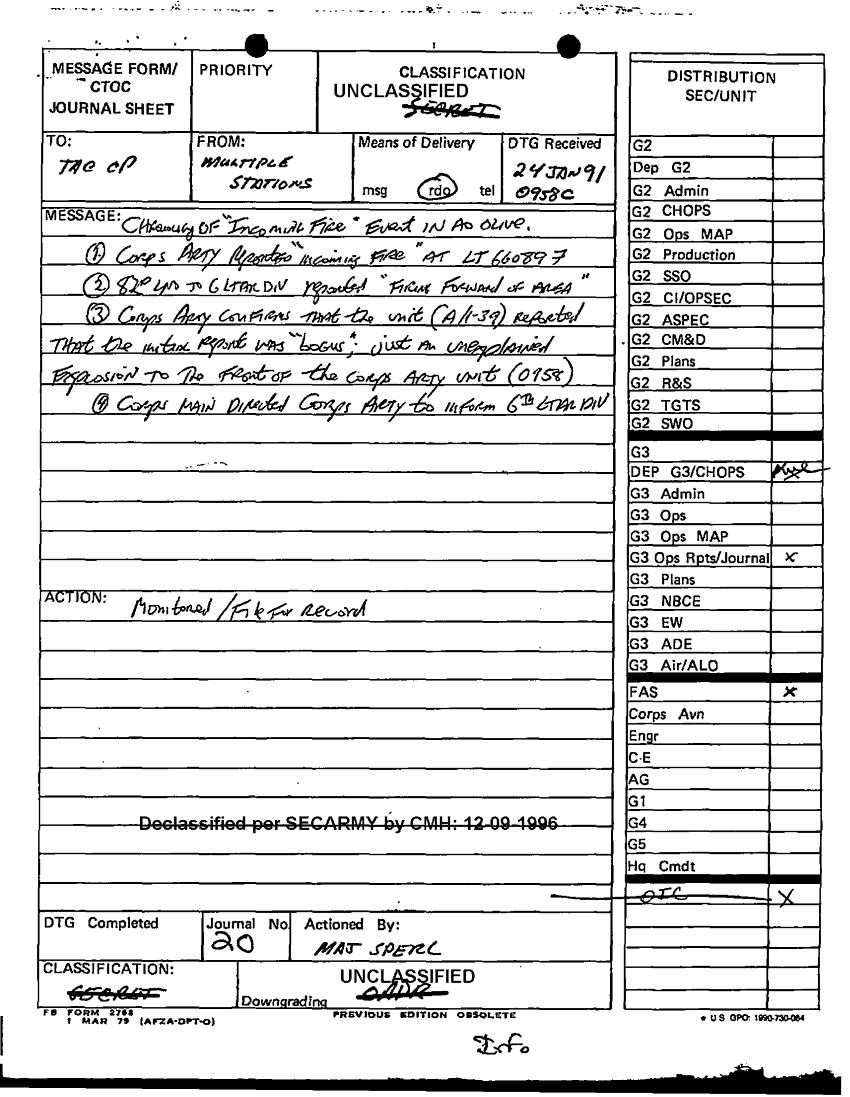 MESSAGE FORM/
CTOC
JOURNAL SHEET
PRIORITY
CLASSIFICATION
UNCLASSIFIED
SECRET
TO:
TAC CP
FROM:
MULTIPLE
STATIONS
Means of Delivery
msg rdo tel
DTG Received
24 JAN 91
0958C
MESSAGE: Chronology OF "Incoming Fire" Event IN AO OLIVE.
① Corps Arty Reported "incoming FIRE" AT LT 660897
② 82D LNO TO 6 LTAR DIV reported "FIRING FORWARD OF AREA"
③ Corps Arty CONFIRMS THAT the unit (A/1-39) REPORTED
THAT the initial REPORT WAS "bogus"; just AN unexplained
EXPLOSION TO The FRONT OF the CORPS ARTY UNIT (0958)
④ Corps MAIN Directed Corps Arty to inform 6TH LTAR DIV
ACTION: Monitored / File For Record
Declassified per SECARMY by CMH: 12-09-1996
DTG Completed
Journal No.
20
Actioned By:
MAJ SPERL
CLASSIFICATION:
SECRET
UNCLASSIFIED
Downgrading OADR
FB FORM 2768
1 MAR 79 (AFZA-DPT-O)
PREVIOUS EDITION OBSOLETE
Info
DISTRIBUTION
SEC/UNIT
G2
Dep G2
G2 Admin
G2 CHOPS
G2 Ops MAP
G2 Production
G2 SSO
G2 CI/OPSEC
G2 ASPEC
G2 CM&D
G2 Plans
G2 R&S
G2 TGTS
G2 SWO
G3
DEP G3/CHOPS
G3 Admin
G3 Ops
G3 Ops MAP
G3 Ops Rpts/Journal X
G3 Plans
G3 NBCE
G3 EW
G3 ADE
G3 Air/ALO
FAS X
Corps Avn
Engr
C-E
AG
G1
G4
G5
Hq Cmdt
OTC X
* U S GPO: 1990-730-084